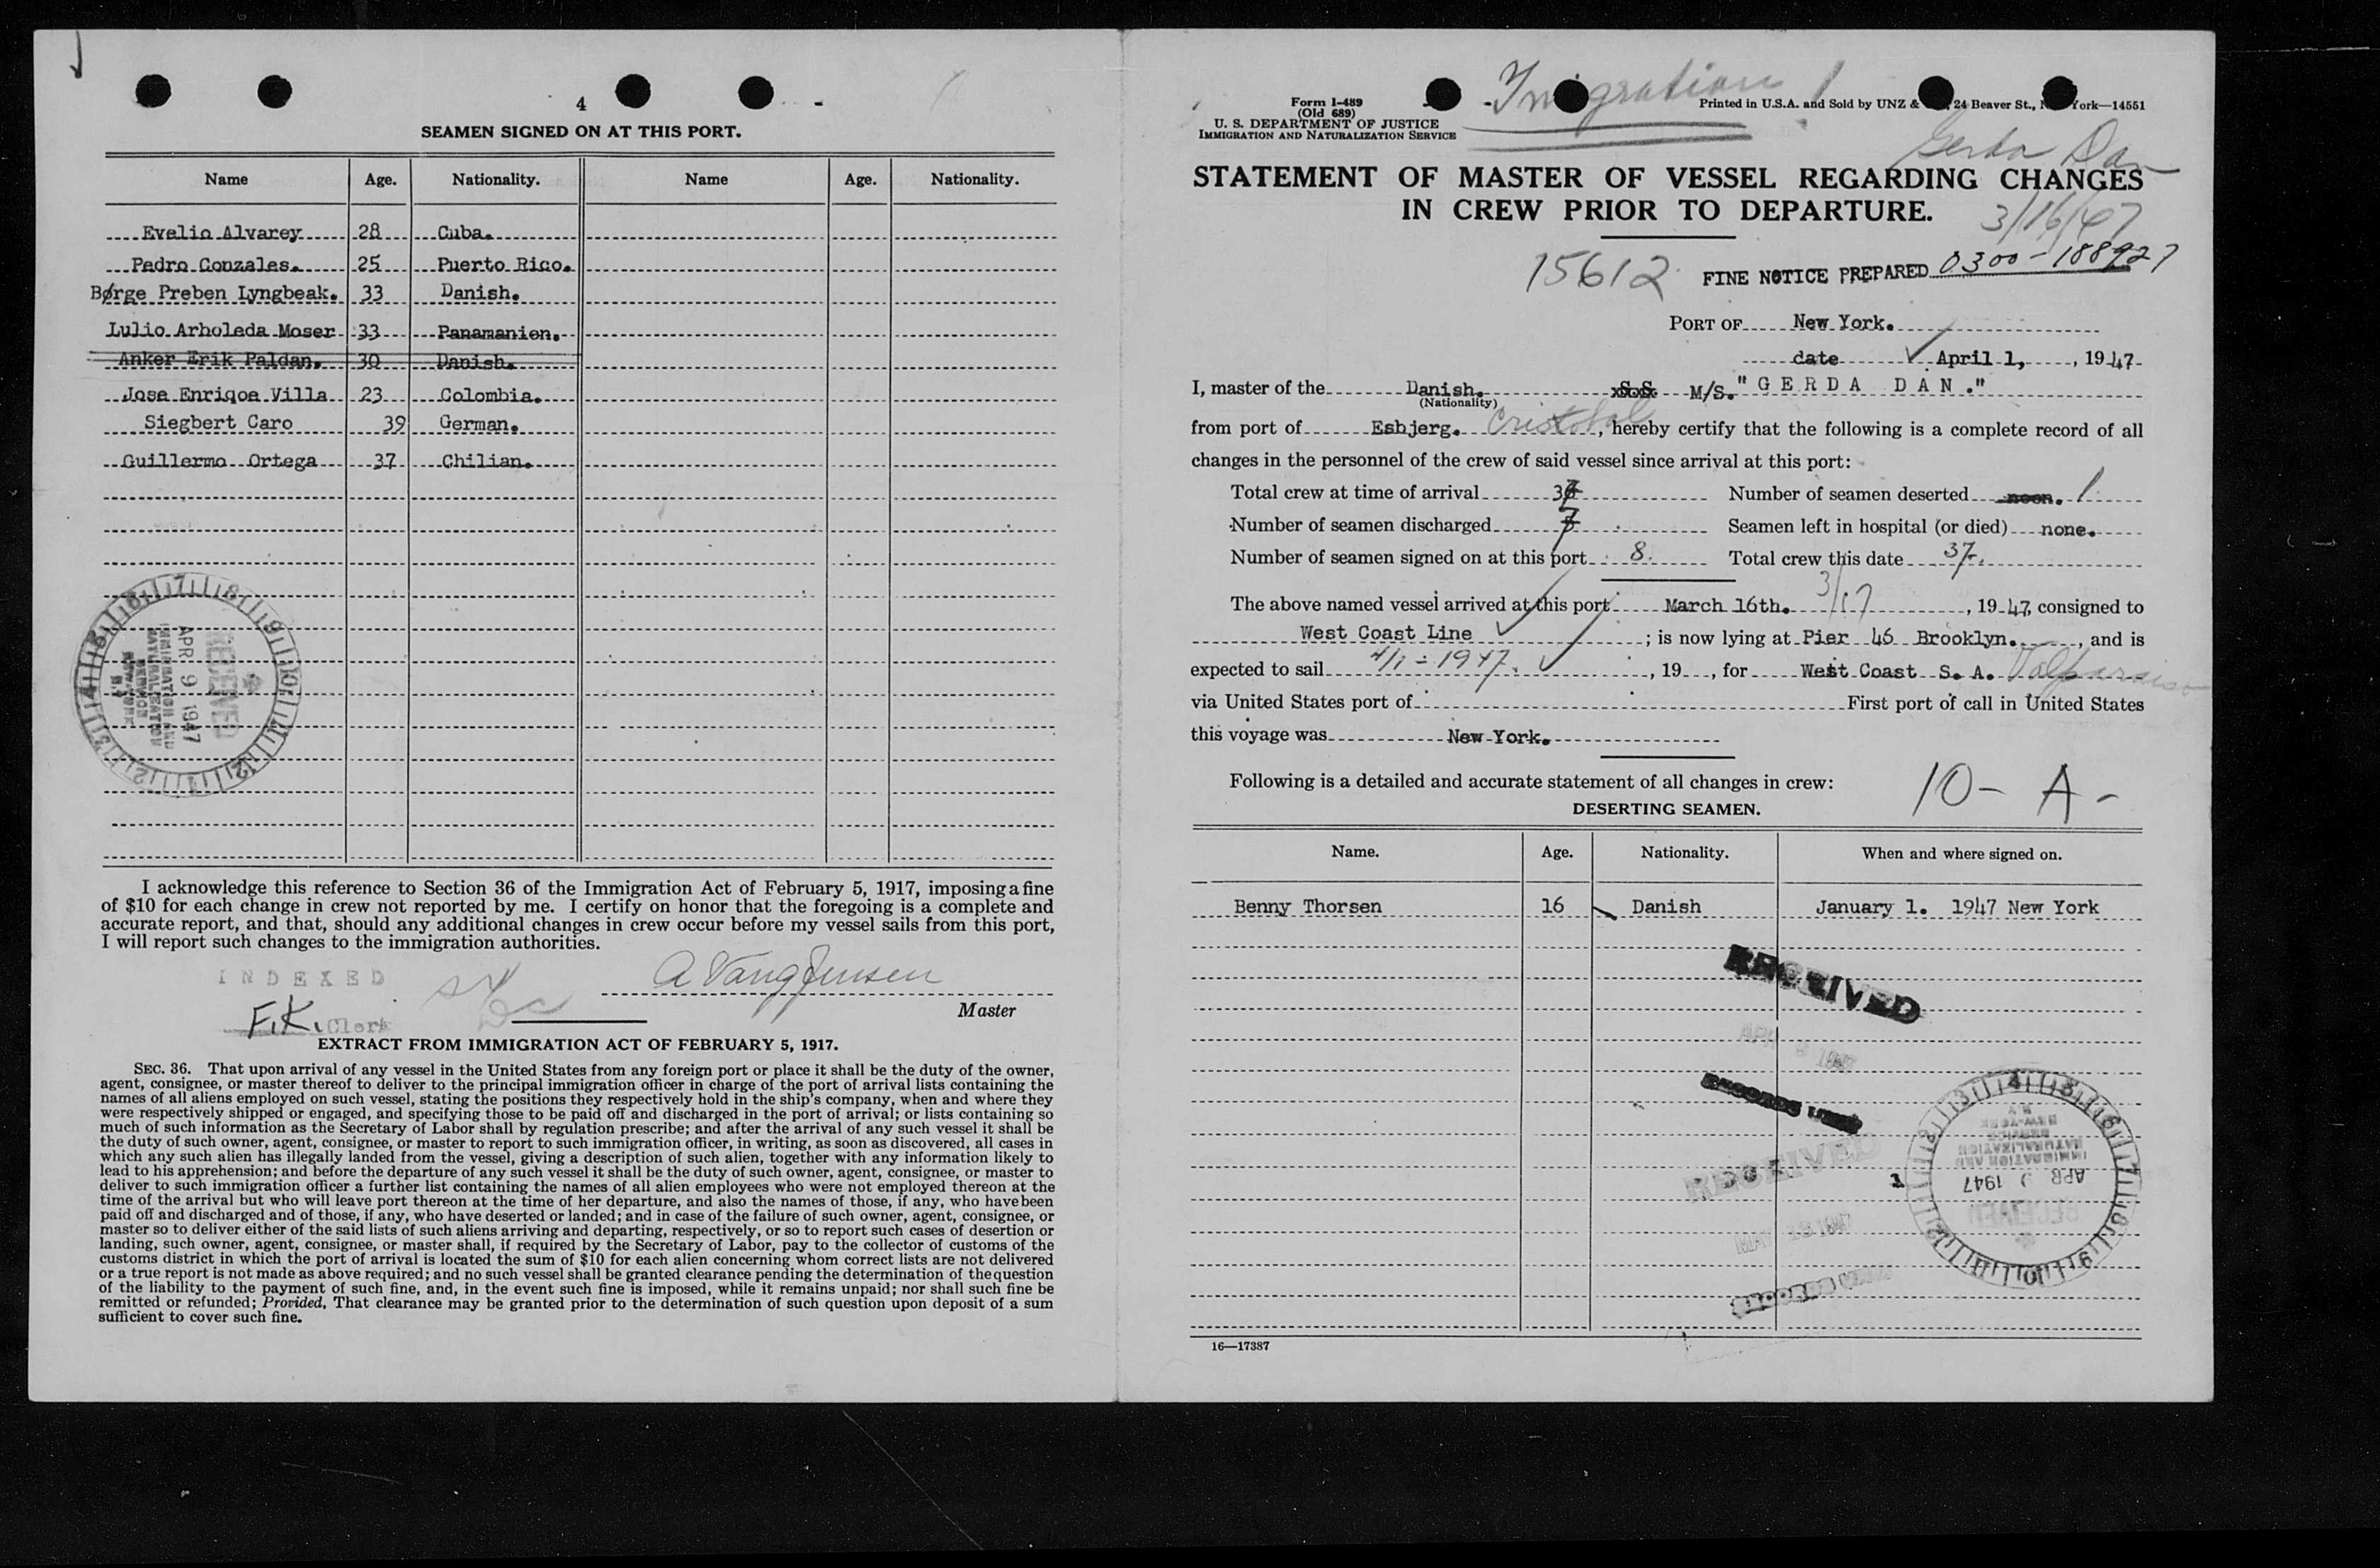 4
SEAMEN SIGNED ON AT THIS PORT.
Name Age. Nationality. Name Age. Nationality.
Evelio Alvarey 28 Cuba.
Pedro Gonzales. 25 Puerto Rico.
Børge Preben Lyngbeak. 33 Danish.
Lulio Arholeda Moser 33 Panamanien.
Anker Erik Paldan. 30 Danish.
Jose Enriqoe Villa 23 Colombia.
Siegbert Caro 39 German.
Guillermo Ortega 37 Chilian.
RECEIVED
APR 9 1947
IMMIGRATION AND
NATURALIZATION
SERVICE
NEW-YORK
N.Y.
I acknowledge this reference to Section 36 of the Immigration Act of February 5, 1917, imposing a fine
of $10 for each change in crew not reported by me. I certify on honor that the foregoing is a complete and
accurate report, and that, should any additional changes in crew occur before my vessel sails from this port,
I will report such changes to the immigration authorities.
INDEXED
A Vang Jensen
Master
F.K. Clerk
EXTRACT FROM IMMIGRATION ACT OF FEBRUARY 5, 1917.
SEC. 36. That upon arrival of any vessel in the United States from any foreign port or place it shall be the duty of the owner,
agent, consignee, or master thereof to deliver to the principal immigration officer in charge of the port of arrival lists containing the
names of all aliens employed on such vessel, stating the positions they respectively hold in the ship's company, when and where they
were respectively shipped or engaged, and specifying those to be paid off and discharged in the port of arrival; or lists containing so
much of such information as the Secretary of Labor shall by regulation prescribe; and after the arrival of any such vessel it shall be
the duty of such owner, agent, consignee, or master to report to such immigration officer, in writing, as soon as discovered, all cases in
which any such alien has illegally landed from the vessel, giving a description of such alien, together with any information likely to
lead to his apprehension; and before the departure of any such vessel it shall be the duty of such owner, agent, consignee, or master to
deliver to such immigration officer a further list containing the names of all alien employees who were not employed thereon at the
time of the arrival but who will leave port thereon at the time of her departure, and also the names of those, if any, who have been
paid off and discharged and of those, if any, who have deserted or landed; and in case of the failure of such owner, agent, consignee, or
master so to deliver either of the said lists of such aliens arriving and departing, respectively, or so to report such cases of desertion or
landing, such owner, agent, consignee, or master shall, if required by the Secretary of Labor, pay to the collector of customs of the
customs district in which the port of arrival is located the sum of $10 for each alien concerning whom correct lists are not delivered
or a true report is not made as above required; and no such vessel shall be granted clearance pending the determination of the question
of the liability to the payment of such fine, and, in the event such fine is imposed, while it remains unpaid; nor shall such fine be
remitted or refunded; Provided, That clearance may be granted prior to the determination of such question upon deposit of a sum
sufficient to cover such fine.
Form I-489
(Old 689)
U. S. DEPARTMENT OF JUSTICE
IMMIGRATION AND NATURALIZATION SERVICE
Imigration 1
Printed in U.S.A. and Sold by UNZ & 24 Beaver St., York—14551
Gerda Dan
STATEMENT OF MASTER OF VESSEL REGARDING CHANGES
IN CREW PRIOR TO DEPARTURE.
3/16/47
15612 FINE NOTICE PREPARED 0300-188927
PORT OF New York.
date April 1, , 1947
I, master of the Danish. S.S. M/S. "GERDA DAN."
(Nationality)
from port of Esbjerg. Cristobal, hereby certify that the following is a complete record of all
changes in the personnel of the crew of said vessel since arrival at this port:
Total crew at time of arrival 37 Number of seamen deserted noen. 1
Number of seamen discharged 7 Seamen left in hospital (or died) none.
Number of seamen signed on at this port 8. Total crew this date 37.
The above named vessel arrived at this port March 16th. 3/17, 1947, consigned to
West Coast Line ; is now lying at Pier 45 Brooklyn. , and is
expected to sail 4/1-1947. , 19 , for West Coast S. A. Valparaiso
via United States port of First port of call in United States
this voyage was New York.
Following is a detailed and accurate statement of all changes in crew:
10-A-
DESERTING SEAMEN.
Name. Age. Nationality. When and where signed on.
Benny Thorsen 16 Danish January 1. 1947 New York
RECEIVED
APR 9 1947
RECORDS
RECEIVED
MAY 1947
RECORDS
1
RECEIVED
APR 9 1947
IMMIGRATION AND
NATURALIZATION
SERVICE
NEW-YORK
N.Y.
16—17387